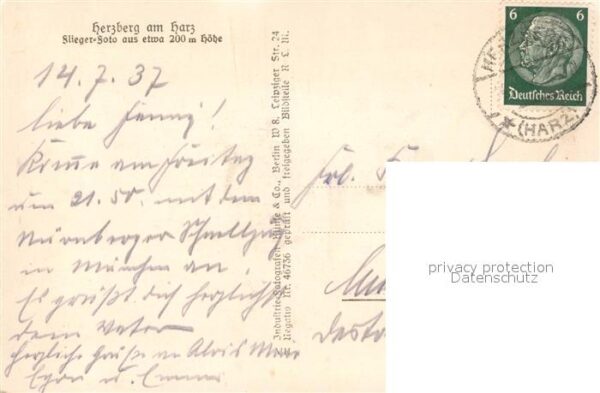 Herzberg am Harz
Flieger-Foto aus etwa 200 m Höhe
14.7.37
Liebe Fanny!
Komme am Freitag
um 21.50 mit dem
Nürnberger Schnellzug
in München an.
Es grüßt dich herzlichst
dein Vater
Herzliche Grüße an Alois
Egon u. Emma
Industrie-Fotografen & Co., Berlin W 8, Leipziger Str. 24
Negativ Nr. 46756 geprüft und freigegeben Bildstelle R L M.
6 6
Deutsches Reich
(HARZ)
Frl.
privacy protection
Datenschutz